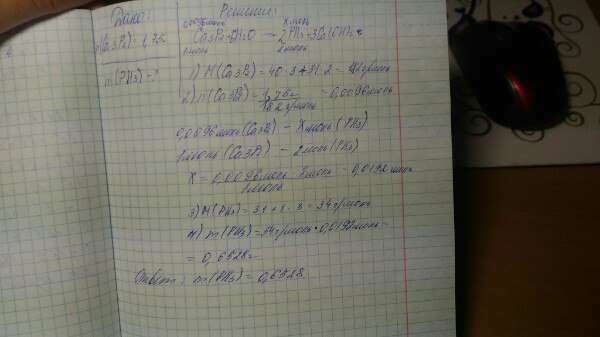 Дано:
Решение:
m(Ca3P2) = 1,75г
m(PH3) - ?
0,0096моль Xмоль
Ca3P2+6H2O → 2PH3+3Ca(OH)2
1моль 2моль
1) M(Ca3P2) = 40·3+31·2 = 182г/моль
2) n(Ca3P2) = 1,75г / 182г/моль = 0,0096моль
0,0096моль(Ca3P2) - Xмоль(PH3)
1моль(Ca3P2) - 2моль(PH3)
X = 0,0096моль · Xмоль / 1моль = 0,0192моль
3) M(PH3) = 31+1·3 = 34г/моль
4) m(PH3) = 34г/моль·0,0192моль =
= 0,6528г
Ответ: m(PH3) = 0,6528